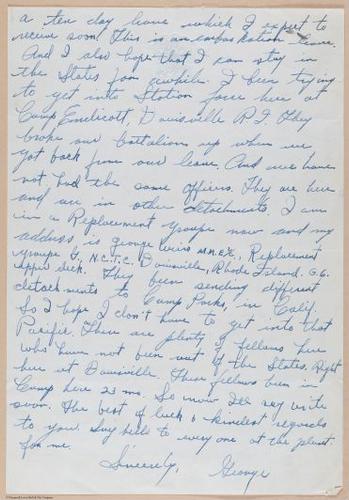 a ten day leave which I expect to
receive soon. This is an embarkation leave.
And I also hope that I can stay in
the States for awhile. I been trying
to get into Station force here at
Camp Endicott, Davisville R.I. They
broke our battalions up when we
got back from our leave. And we have
not had the same officers. They are here
and are in other detachments. I am
in a Replacement Groupe now and my
address is george M.M. 2/c, Replacement
groupe G, N.C.T.C. Davisville, Rhode Island. G.G.
upper deck. They been sending different
detachments to Camp Parks, in Calif.
So I hope I don't have to get into that
Pacific. There are plenty of fellows here
who have not been out of the States. Right
here at Davisville. These fellows been in
Camp here 23 mo. So now I'll say write
soon. The best of luck & kindest regards
to you. Say hello to every one at the plant
for me.
Sincerely, George